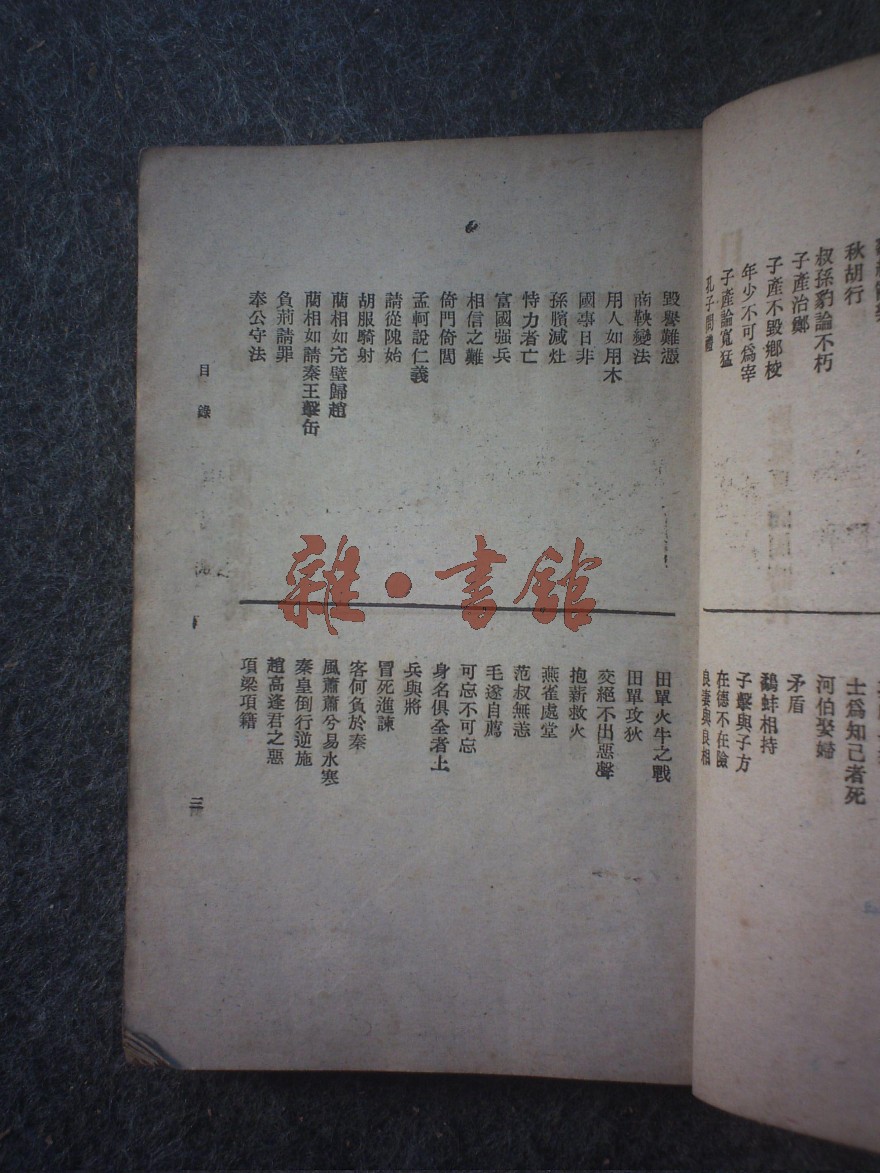 秋胡行
叔孫豹論不朽
子產治鄭
子產不毀鄉校
年少不可爲宰
子產論寬猛
孔子問禮
士爲知己者死
河伯娶婦
矛盾
鷸蚌相持
子擊與子方
在德不在險
良妻與良相
毀譽難憑
商鞅變法
用人如用木
國事日非
孫臏滅灶
恃力者亡
富國强兵
相信之難
倚門倚閭
孟軻說仁義
請從隗始
胡服騎射
藺相如完璧歸趙
藺相如請秦王擊缶
負荊請罪
奉公守法
田單火牛之戰
田單攻狄
交絕不出惡聲
抱薪救火
燕雀處堂
范叔無恙
毛遂自薦
可忘不可忘
身名俱全者上
兵與將
冒死進諫
客何負於秦
風蕭蕭兮易水寒
秦皇倒行逆施
趙高逢君之惡
項梁項籍
目錄
三
雜·書館